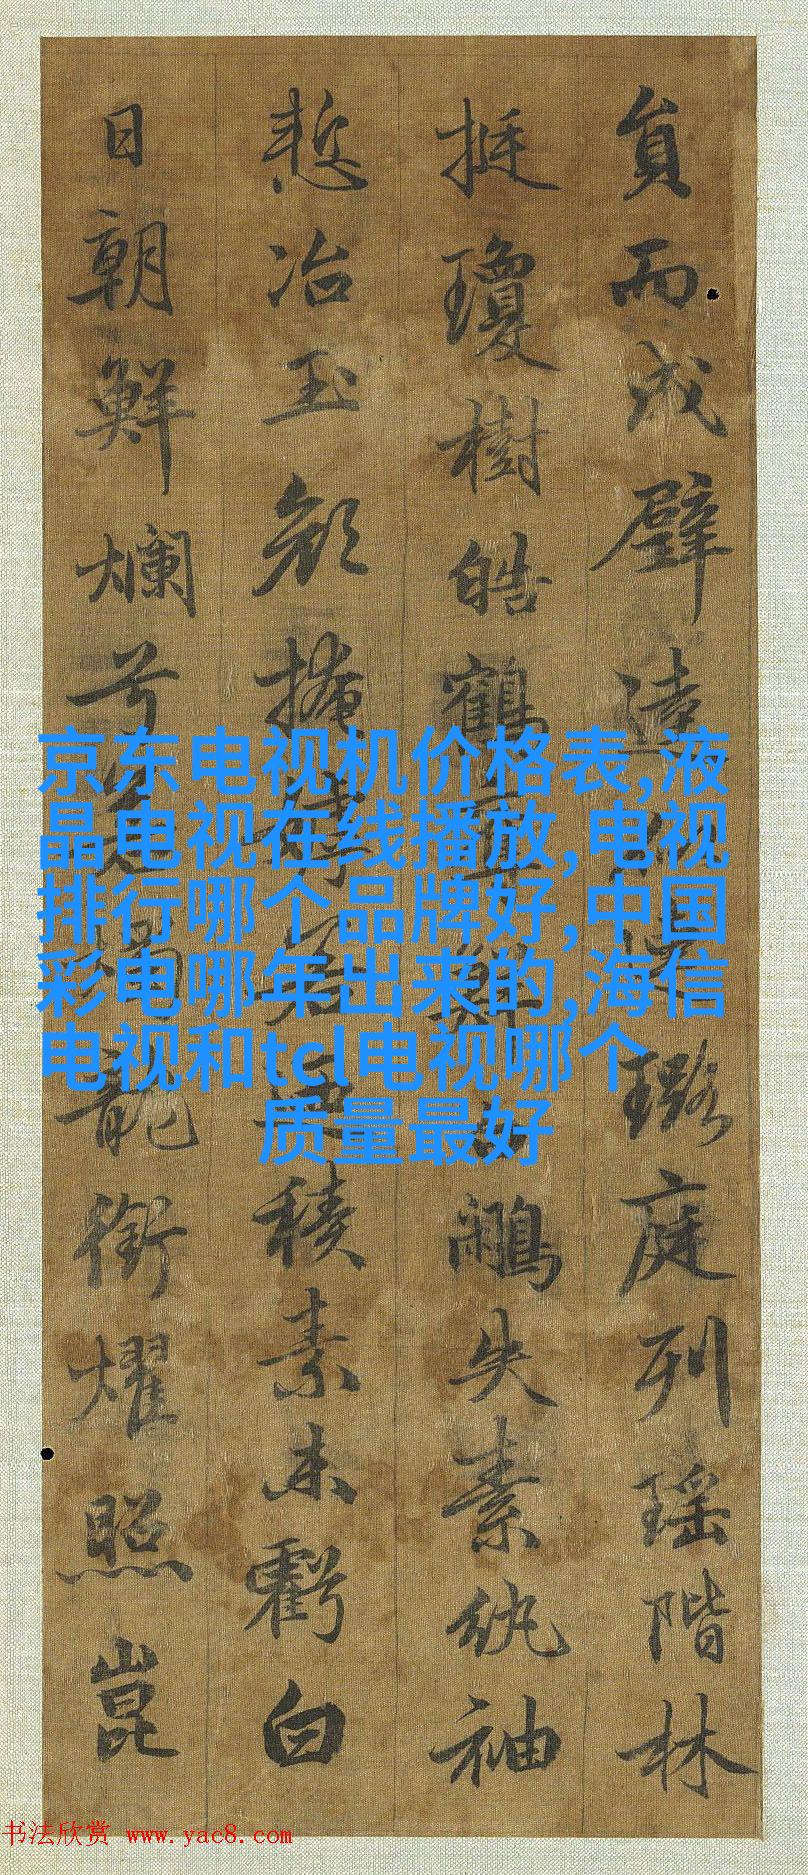 員而成璧逵連璐庭列瑶階林
挺瓊樹皓鶴鮮鷳失素紈袖
慙冶玉顔掩若積素未虧白
日朝鮮爛兮龍銜燿照崑
京东电视机价格表,液
晶电视在线播放,电视
排行哪个品牌好,中国
彩电哪年出来的,海信
电视和tcl电视哪个
质量最好
书法欣赏 www.yac8.com